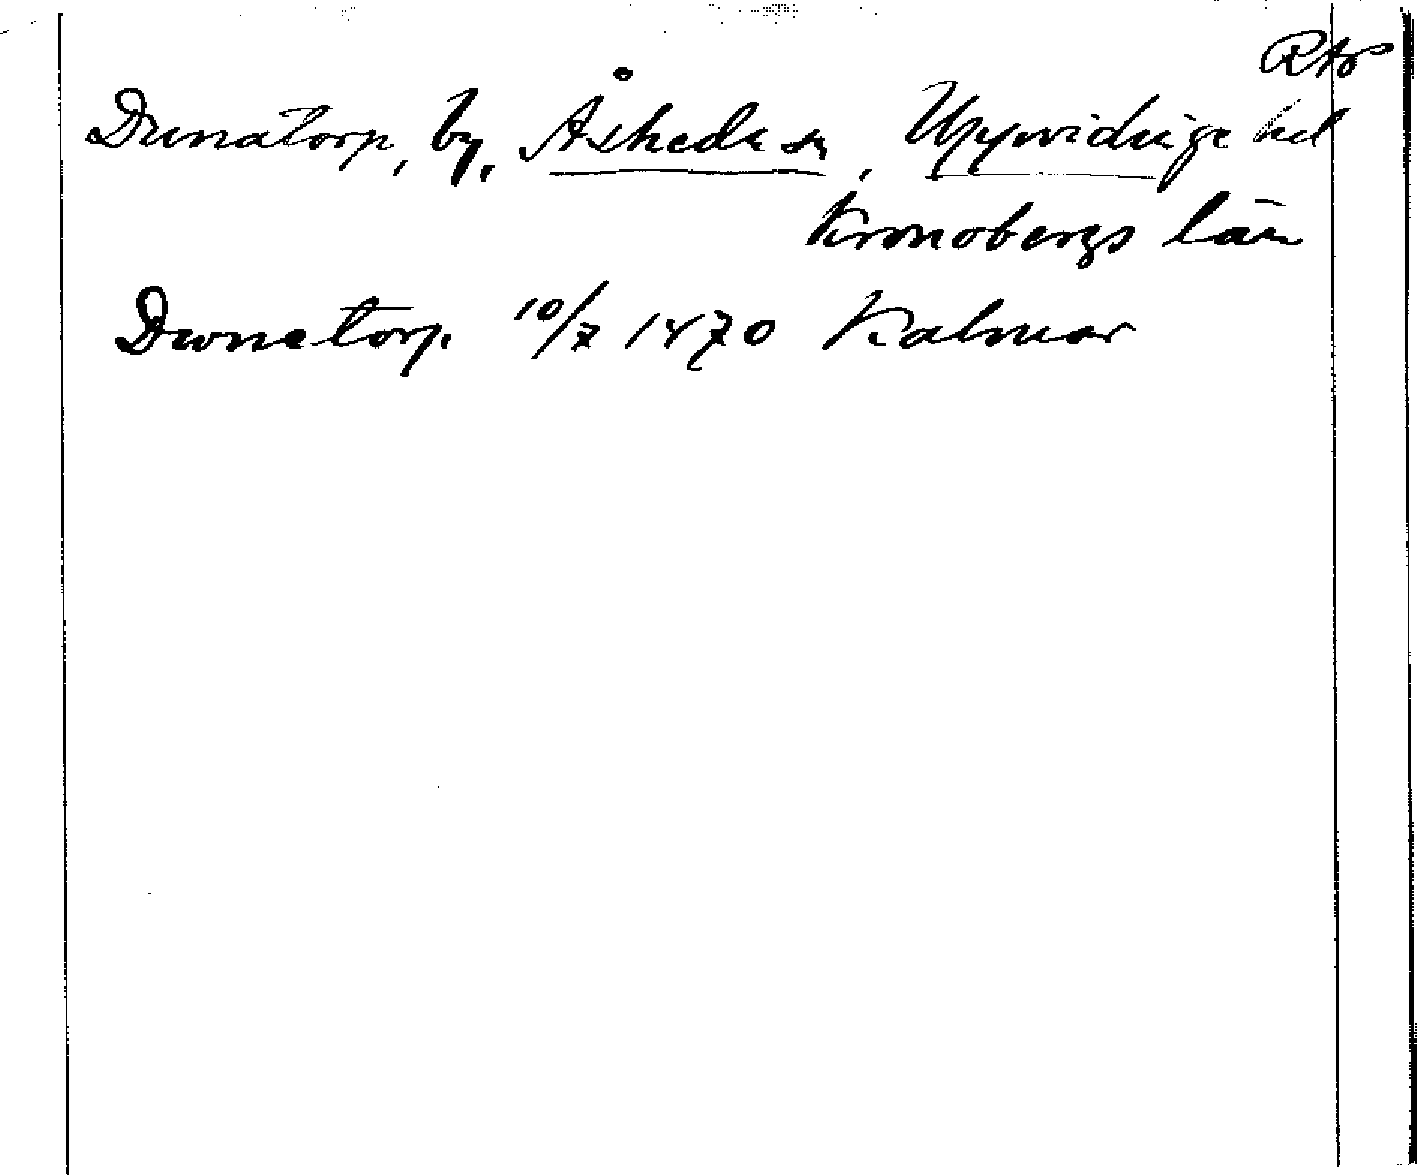 RAO
Dunatorp, by, Åsheda sn, Uppvidinge hd
Kronobergs län
Dwnetorp 10/7 1470 Kalmar